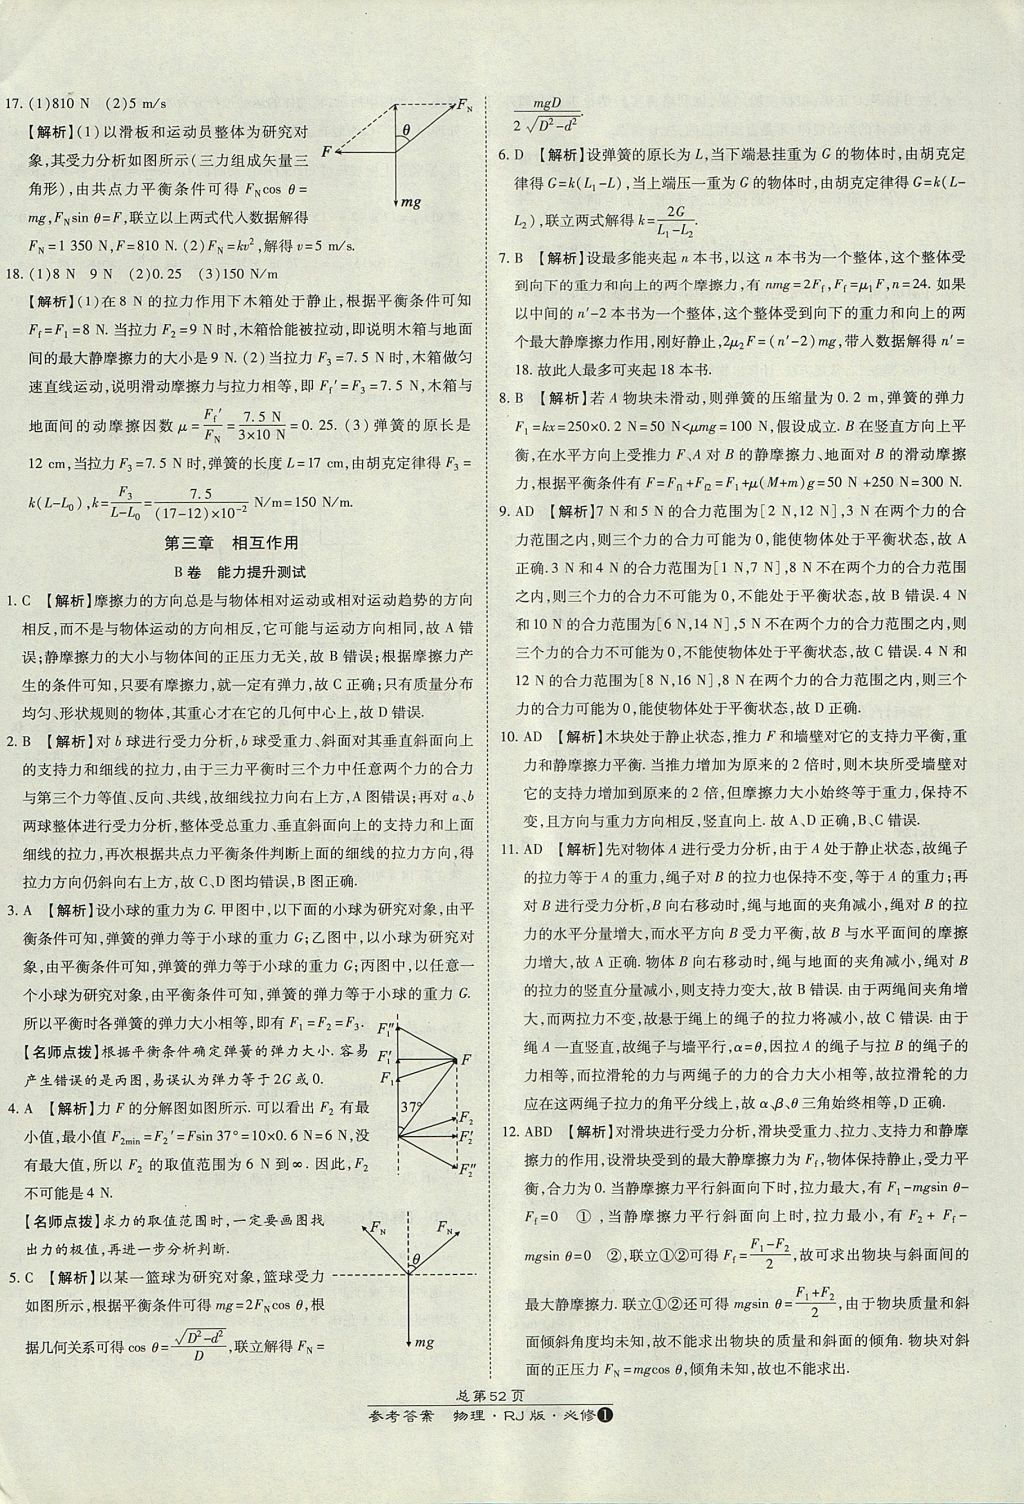 17. (1)810 N (2)5 m/s
【解析】(1)以滑板和运动员整体为研究对
象,其受力分析如图所示(三力组成矢量三
角形),由共点力平衡条件可得 F_N cos θ=
mg,F_N sin θ=F,联立以上两式代人数据解得
F_N=1 350 N,F=810 N. (2)F_N=kv²,解得v=5 m/s.
F_N
θ
F
mg
18. (1)8 N 9 N (2)0.25 (3)150 N/m
【解析】(1)在 8 N 的拉力作用下木箱处于静止,根据平衡条件可知
F_f=F₁=8 N. 当拉力 F₂=9 N 时,木箱恰能被拉动,即说明木箱与地面
间的最大静摩擦力的大小是 9 N. (2)当拉力 F₃=7.5 N 时,木箱做匀
速直线运动,说明滑动摩擦力与拉力相等,即 F_f′=F₃=7.5 N,木箱与
地面间的动摩擦因数 μ=F_f′/F_N=7.5 N/(3×10 N)=0. 25. (3)弹簧的原长是
12 cm,当拉力 F₃=7.5 N 时,弹簧的长度 L=17 cm,由胡克定律得 F₃=
k(L-L₀),k=F₃/(L-L₀)=7.5/((17-12)×10⁻²) N/m=150 N/m.
第三章 相互作用
B卷 能力提升测试
1. C 【解析】摩擦力的方向总是与物体相对运动或相对运动趋势的方向
相反,而不是与物体运动的方向相反,它可能与运动方向相同,故 A 错
误;静摩擦力的大小与物体间的正压力无关,故 B 错误;根据摩擦力产
生的条件可知,只要有摩擦力,就一定有弹力,故 C 正确;只有质量分布
均匀、形状规则的物体,其重心才在它的几何中心上,故 D 错误.
2. B 【解析】对 b 球进行受力分析,b 球受重力、斜面对其垂直斜面向上
的支持力和细线的拉力,由于三力平衡时三个力中任意两个力的合力
与第三个力等值、反向、共线,故细线拉力向右上方,A 图错误;再对 a、b
两球整体进行受力分析,整体受总重力、垂直斜面向上的支持力和上面
细线的拉力,再次根据共点力平衡条件判断上面的细线的拉力方向,得
拉力方向仍斜向右上方,故 C、D 图均错误,B 图正确.
3. A 【解析】设小球的重力为 G. 甲图中,以下面的小球为研究对象,由平
衡条件可知,弹簧的弹力等于小球的重力 G;乙图中,以小球为研究对
象,由平衡条件可知,弹簧的弹力等于小球的重力 G;丙图中,以任意一
个小球为研究对象,由平衡条件可知,弹簧的弹力等于小球的重力 G.
所以平衡时各弹簧的弹力大小相等,即有 F₁=F₂=F₃.
【名师点拨】根据平衡条件确定弹簧的弹力大小. 容易
产生错误的是丙图,易误认为弹力等于2G或0.
4. A 【解析】力 F 的分解图如图所示. 可以看出 F₂ 有最
小值,最小值 F₂min=F₂′=Fsin 37°=10×0.6 N=6 N,没
有最大值,所以 F₂ 的取值范围为 6 N 到∞. 因此,F₂
不可能是 4 N.
【名师点拨】求力的取值范围时,一定要画图找
出力的极值,再进一步分析判断.
F₁″
F₁′
F
F₁
37°
F₂
F₂′
F₂″
5. C 【解析】以某一篮球为研究对象,篮球受力
如图所示,根据平衡条件可得 mg=2F_N cos θ,根
据几何关系可得 cos θ=√(D²-d²)/D,联立解得 F_N=
F_N
F_N
θ
mg
mgD/(2√(D²-d²)).
6. D 【解析】设弹簧的原长为 L,当下端悬挂重为 G 的物体时,由胡克定
律得 G=k(L₁-L),当上端压一重为 G 的物体时,由胡克定律得 G=k(L-
L₂),联立两式解得 k=2G/(L₁-L₂).
7. B 【解析】设最多能夹起 n 本书,以这 n 本书为一个整体,这个整体受
到向下的重力和向上的两个摩擦力,有 nmg=2F_f,F_f=μ₁F,n=24. 如果
以中间的 n′-2 本书为一个整体,这个整体受到向下的重力和向上的两
个最大静摩擦力作用,刚好静止,2μ₂F=(n′-2)mg,带入数据解得 n′=
18. 故此人最多可夹起 18 本书.
8. B 【解析】若 A 物块未滑动,则弹簧的压缩量为 0. 2 m,弹簧的弹力
F₁=kx=250×0. 2 N=50 N<μmg=100 N,假设成立. B 在竖直方向上平
衡,在水平方向上受推力 F、A 对 B 的静摩擦力、地面对 B 的滑动摩擦
力,根据平衡条件有 F=F_f1+F_f2=F₁+μ(M+m)g=50 N +250 N=300 N.
9. AD 【解析】7 N 和 5 N 的合力范围为[2 N,12 N],3 N 在两个力的合
力范围之内,则三个力的合力可能为 0,能使物体处于平衡状态,故 A
正确. 3 N 和 4 N 的合力范围为[1 N,7 N],8 N 不在两个力的合力范围
之内,则三个力的合力不可能为 0,不能处于平衡状态,故 B 错误. 4 N
和 10 N 的合力范围为[6 N,14 N],5 N 不在两个力的合力范围之内,则
三个力的合力不可能为 0,不能使物体处于平衡状态,故 C 错误. 4 N 和
12 N 的合力范围为[8 N,16 N],8 N 在两个力的合力范围之内,则三个
力的合力可能为 0,能使物体处于平衡状态,故 D 正确.
10. AD 【解析】木块处于静止状态,推力 F 和墙壁对它的支持力平衡,重
力和静摩擦力平衡. 当推力增加为原来的 2 倍时,则木块所受墙壁对
它的支持力增加到原来的 2 倍,但摩擦力大小始终等于重力,保持不
变,且方向与重力方向相反,竖直向上. 故 A、D 正确,B、C 错误.
11. AD 【解析】先对物体 A 进行受力分析,由于 A 处于静止状态,故绳子
的拉力等于 A 的重力,绳子对 B 的拉力也保持不变,等于 A 的重力;再
对 B 进行受力分析,B 向右移动时,绳与地面的夹角减小,绳对 B 的拉
力的水平分量增大,而水平方向 B 受力平衡,故 B 与水平面间的摩擦
力增大,故 A 正确. 物体 B 向右移动时,绳与地面的夹角减小,绳对 B
的拉力的竖直分量减小,则支持力变大,故 B 错误. 由于两绳间夹角增
大,而两拉力不变,故悬于绳上的绳子的拉力将减小,故 C 错误. 由于
绳 A 一直竖直,故绳子与墙平行,α=θ,因拉 A 的绳子与拉 B 的绳子的
力相等,而拉滑轮的力与两绳子的力的合力大小相等,故拉滑轮的力
应在这两绳子拉力的角平分线上,故 α、β、θ 三角始终相等,D 正确.
12. ABD 【解析】对滑块进行受力分析,滑块受重力、拉力、支持力和静摩
擦力的作用,设滑块受到的最大静摩擦力为 F_f,物体保持静止,受力平
衡,合力为 0. 当静摩擦力平行斜面向下时,拉力最大,有 F₁-mgsin θ-
F_f=0 ①,当静摩擦力平行斜面向上时,拉力最小,有 F₂+ F_f-
mgsin θ=0 ②,联立①②可得 F_f=(F₁-F₂)/2,故可求出物块与斜面间的
最大静摩擦力. 联立①②还可得 mgsin θ=(F₁+F₂)/2,由于物块质量和斜
面倾斜角度均未知,故不能求出物块的质量和斜面的倾角. 物块对斜
面的正压力 F_N=mgcos θ,倾角未知,故也不能求出.
总第52页
参考答案 物理·RJ版·必修1